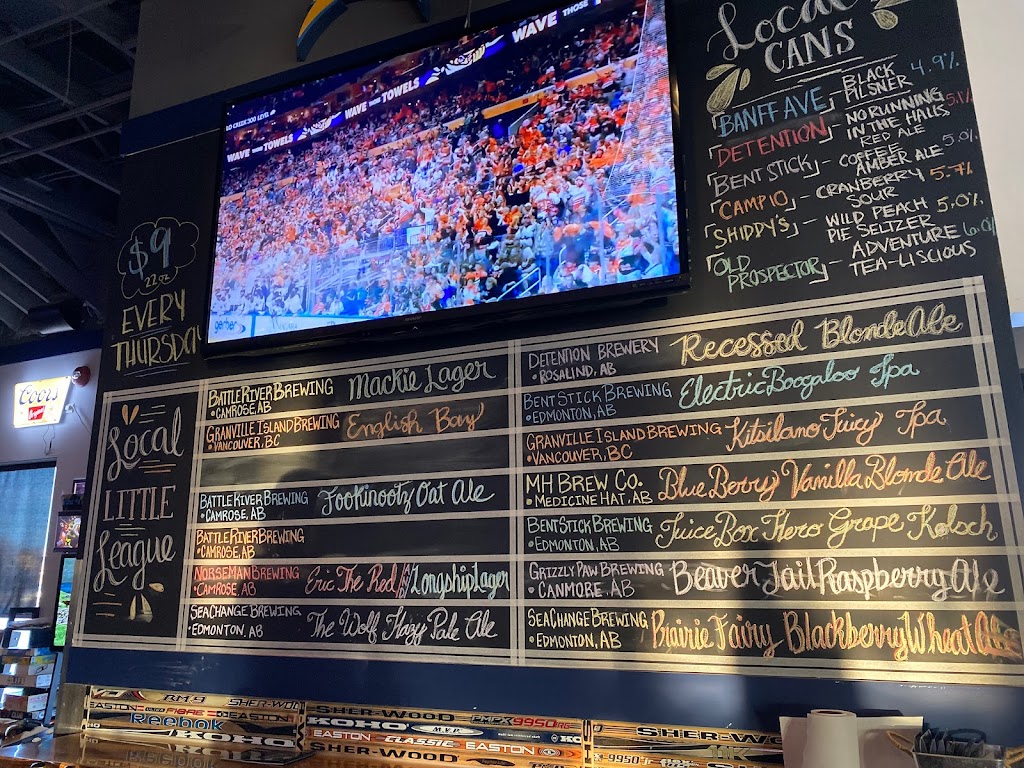 WAVE THOSE
WAVE THOSE TOWELS
WAVE THOSE TOWELS
gerber
Local
CANS
BANFF AVE - BLACK PILSNER 4.9%
DETENTION - NO RUNNING IN THE HALLS RED ALE
BENT STICK - COFFEE AMBER ALE 5.0%
CAMPIO - CRANBERRY SOUR 5.7%
SHIDDY'S - WILD PEACH PIE SELTZER 5.0%
OLD PROSPECTOR - ADVENTURE TEA-LICIOUS
$9
22oz
EVERY
THURSDAY
Coors
Local
LITTLE
League
BATTLE RIVER BREWING Mackie Lager
• CAMROSE, AB
GRANVILLE ISLAND BREWING English Bay
• VANCOUVER, BC
BATTLE RIVER BREWING Tookinootz Oat Ale
• CAMROSE, AB
BATTLE RIVER BREWING
• CAMROSE, AB
NORSEMAN BREWING Eric The Red // Longship Lager
• CAMROSE, AB
SEA CHANGE BREWING The Wolf Hazy Pale Ale
• EDMONTON, AB
DETENTION BREWERY Recessed Blonde Ale
• ROSALIND, AB
BENT STICK BREWING Electric Boogaloo Ipa
• EDMONTON, AB
GRANVILLE ISLAND BREWING Kitsilano Juicy Ipa
• VANCOUVER, BC
MH BREW CO. Blue Berry Vanilla Blonde Ale
• MEDICINE HAT, AB
BENT STICK BREWING Juice Box Hero Grape Kolsch
• EDMONTON, AB
GRIZZLY PAW BREWING Beaver Tail Raspberry Ale
CANMORE, AB
SEA CHANGE BREWING Prairie Fairy Blackberry Wheat Ale
• EDMONTON, AB
SHER-WOOD
EASTON FIBRE EASTON
Reebok
KOHO
SHER-WOOD
KOHO MVP
EASTON CLASSIC EASTON
SHER-WOOD
9950
SHER-WOOD